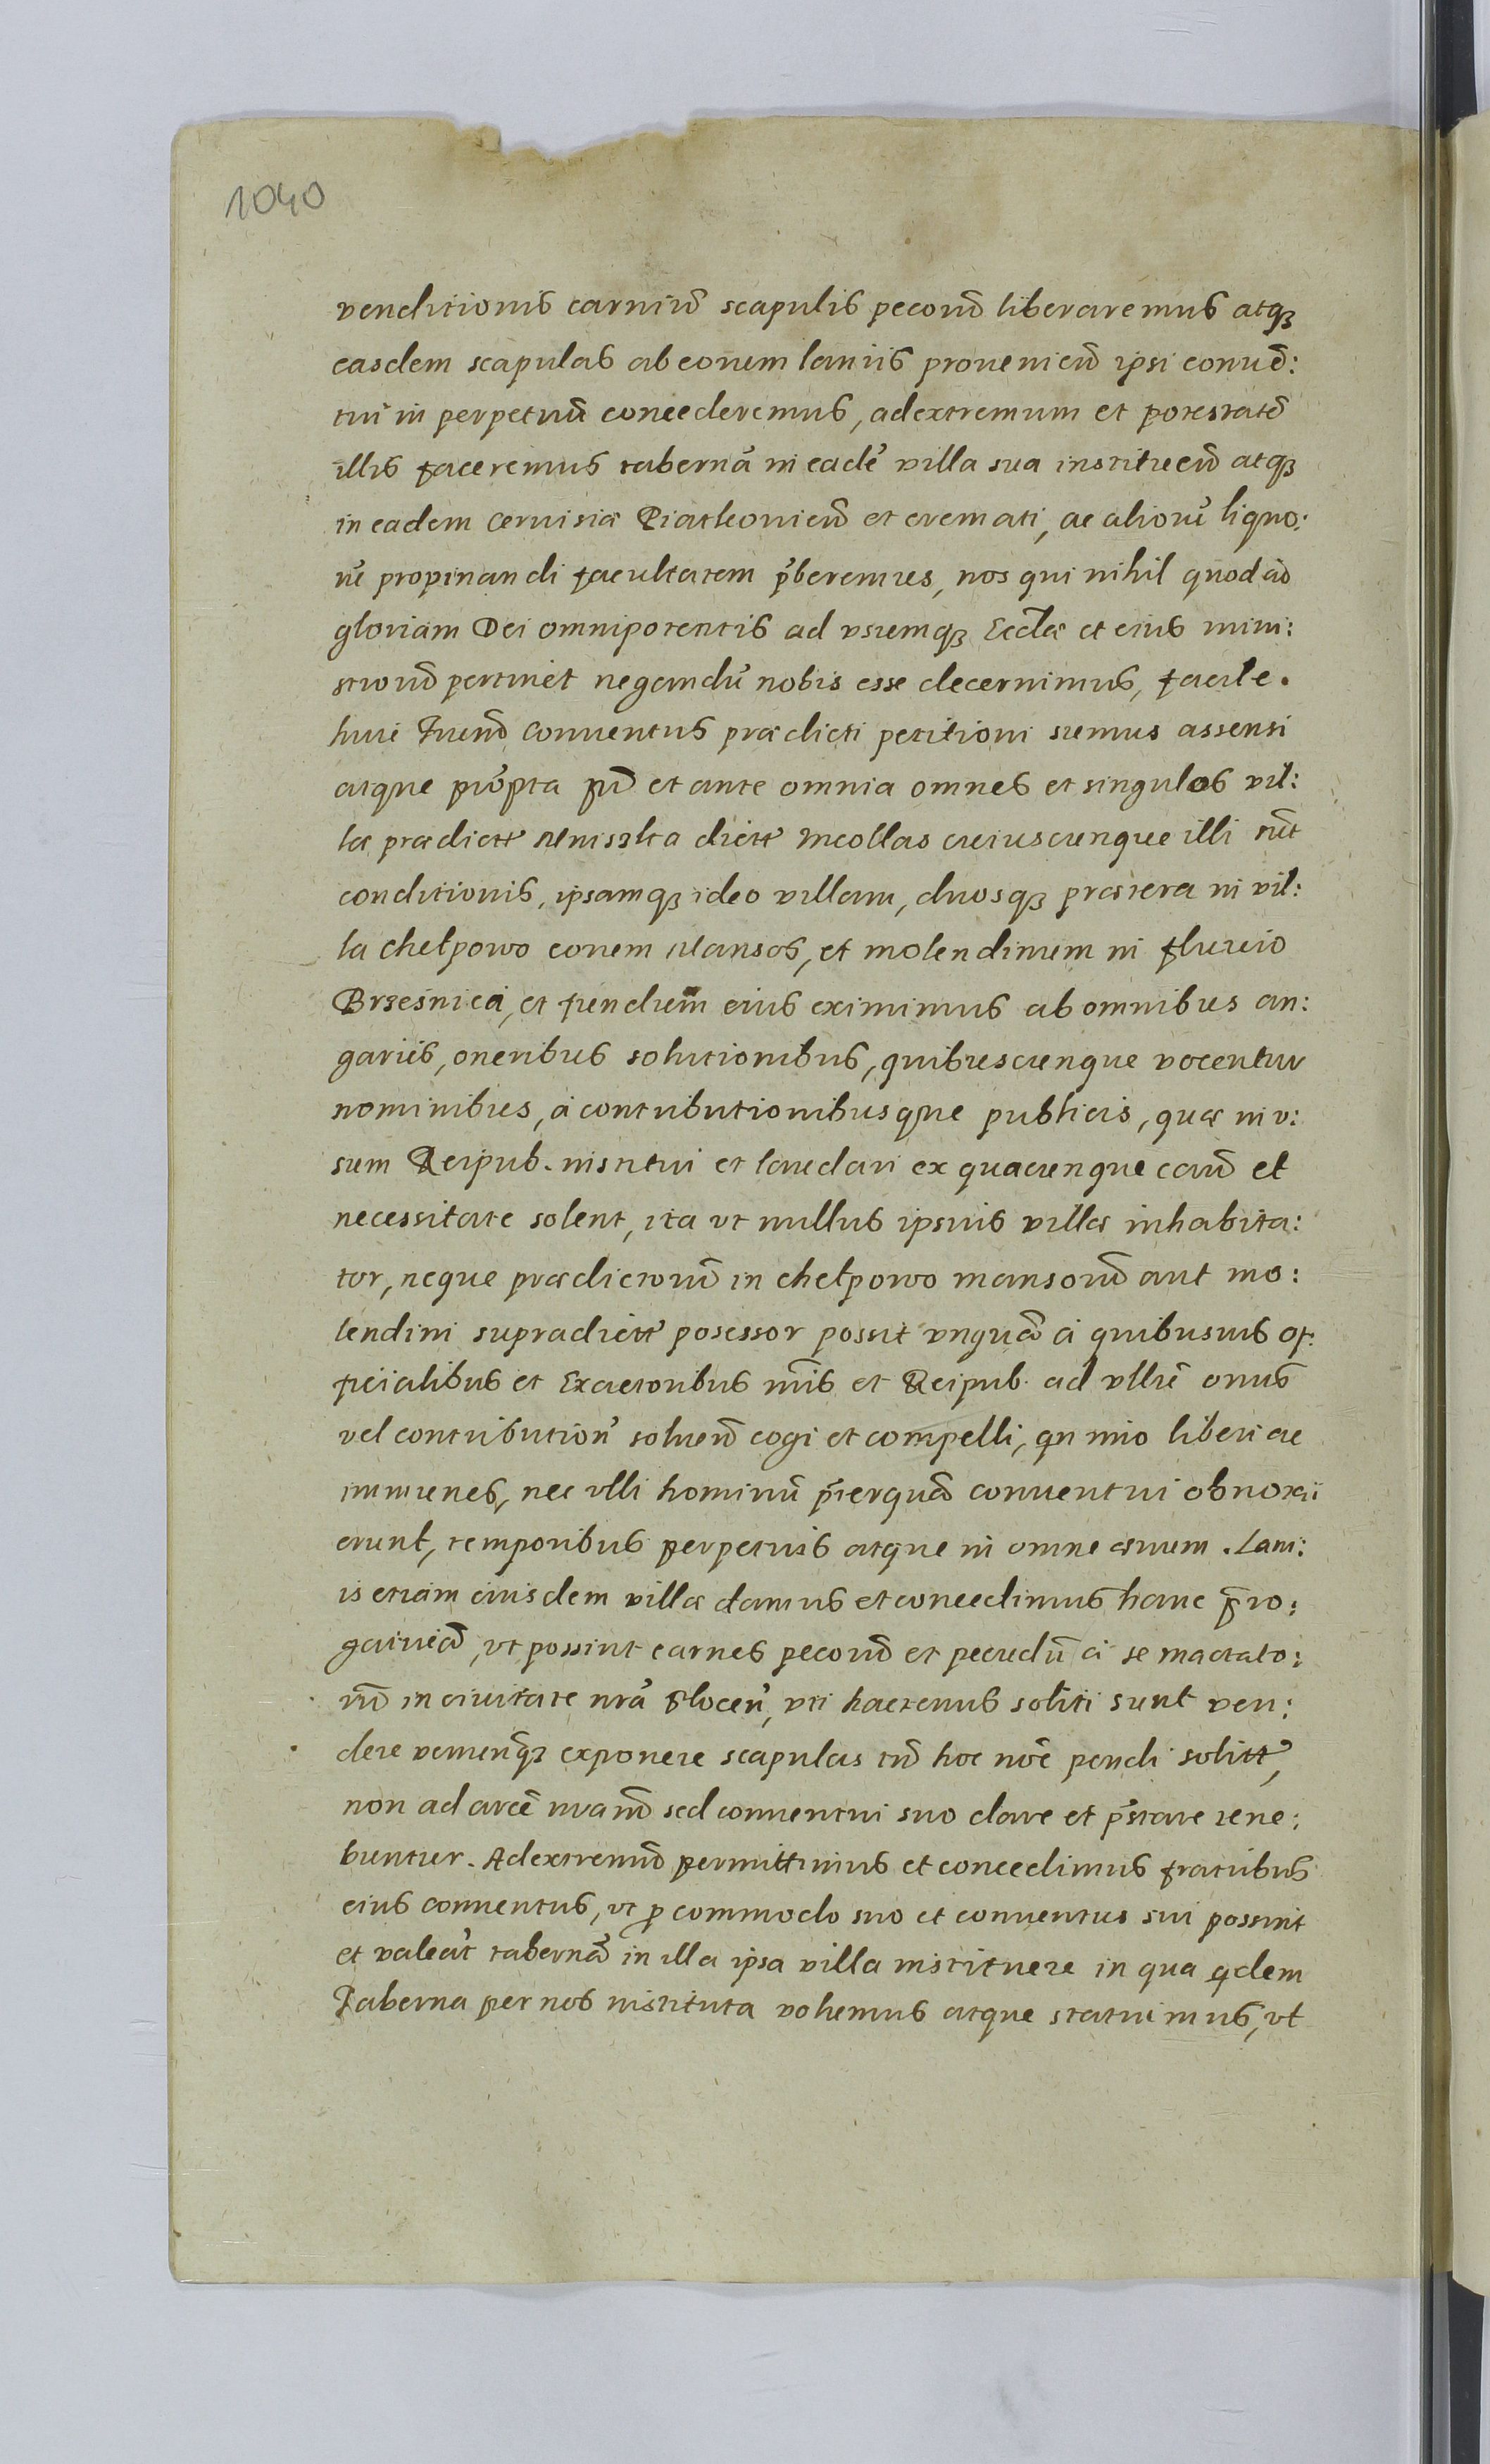 1040
venditionis carniū scapulis pecorū liberaremus atq3
easdem scapulas ab eorum laniis prouenien̄ ipsi conuē:
tui in perpetuū concederemus, ad extremum et potestatē
illis faceremus tabernā in eadē villa sua instituen̄ atq3
in eadem ceruisiæ Piatkouien̄ et cremati, ac aliorū liquo:
rū propinandi facultatem p̄beremus, nos qui nihil quod ad
gloriam Dei omnipotentis ad vsumq3 Eccl̄æ et eius mini:
strorū pertinet negandū nobis esse decernimus, facile.
huic conuentus prædicti petitioni sumus assensi
atque et ante omnia omnes et singulos vil:
læ prædictæ dictæ incollas cuiuscunque illi
conditionis, ipsamq3 ideo villam, duosq3 præterea in vil:
la chelpowo eorum Mansos, et molendinum in fluuio
Brzesnica, et fundum eius eximimus ab omnibus an:
gariis, oneribus solutionibus, quibuscunque vocentur
nominibus, à contributionibusque publicis, quæ in v:
sum Reipub. institui et laudari ex quacunque cau͞ et
necessitate solent, ita vt nullus ipsius villæ inhabita:
tor, neque prædictorū in chelpowo mansorū aut mo:
lendini supradicti posessor possit vnquā à quibusuis of:
ficialibus et Exactoribus nr̄is et Reipub. ad vllū onus
vel contributionē soluen̄ cogi et compelli, qn imo liberi ac
immunes, nec vlli hominū p̄terquā conuentui obnoxii
erunt, temporibus perpetuis atque in omne æuum. Lani:
is etiam eiusdem villæ damus et concedimus hanc p̄ro:
gatiuā, vt possint carnes pecorū et pecudū à se mactato:
rū in ciuitate nrā Plocen̄, vti hactenus soliti sunt ven:
dere venumq3 exponere scapulas tn̄ hoc noīe pendi solitæ,
non ad arcē nram̄ sed conuentui suo dare et p̄stare tene:
buntur. Ad extremū permittimus et concedimus fratribus
eius conuentus, vt p commodo suo et conuentus sui possint
et valeāt tabernā in illa ipsa villa instituere in qua qdem
Taberna per nos instituta volumus atque statuimus, vt